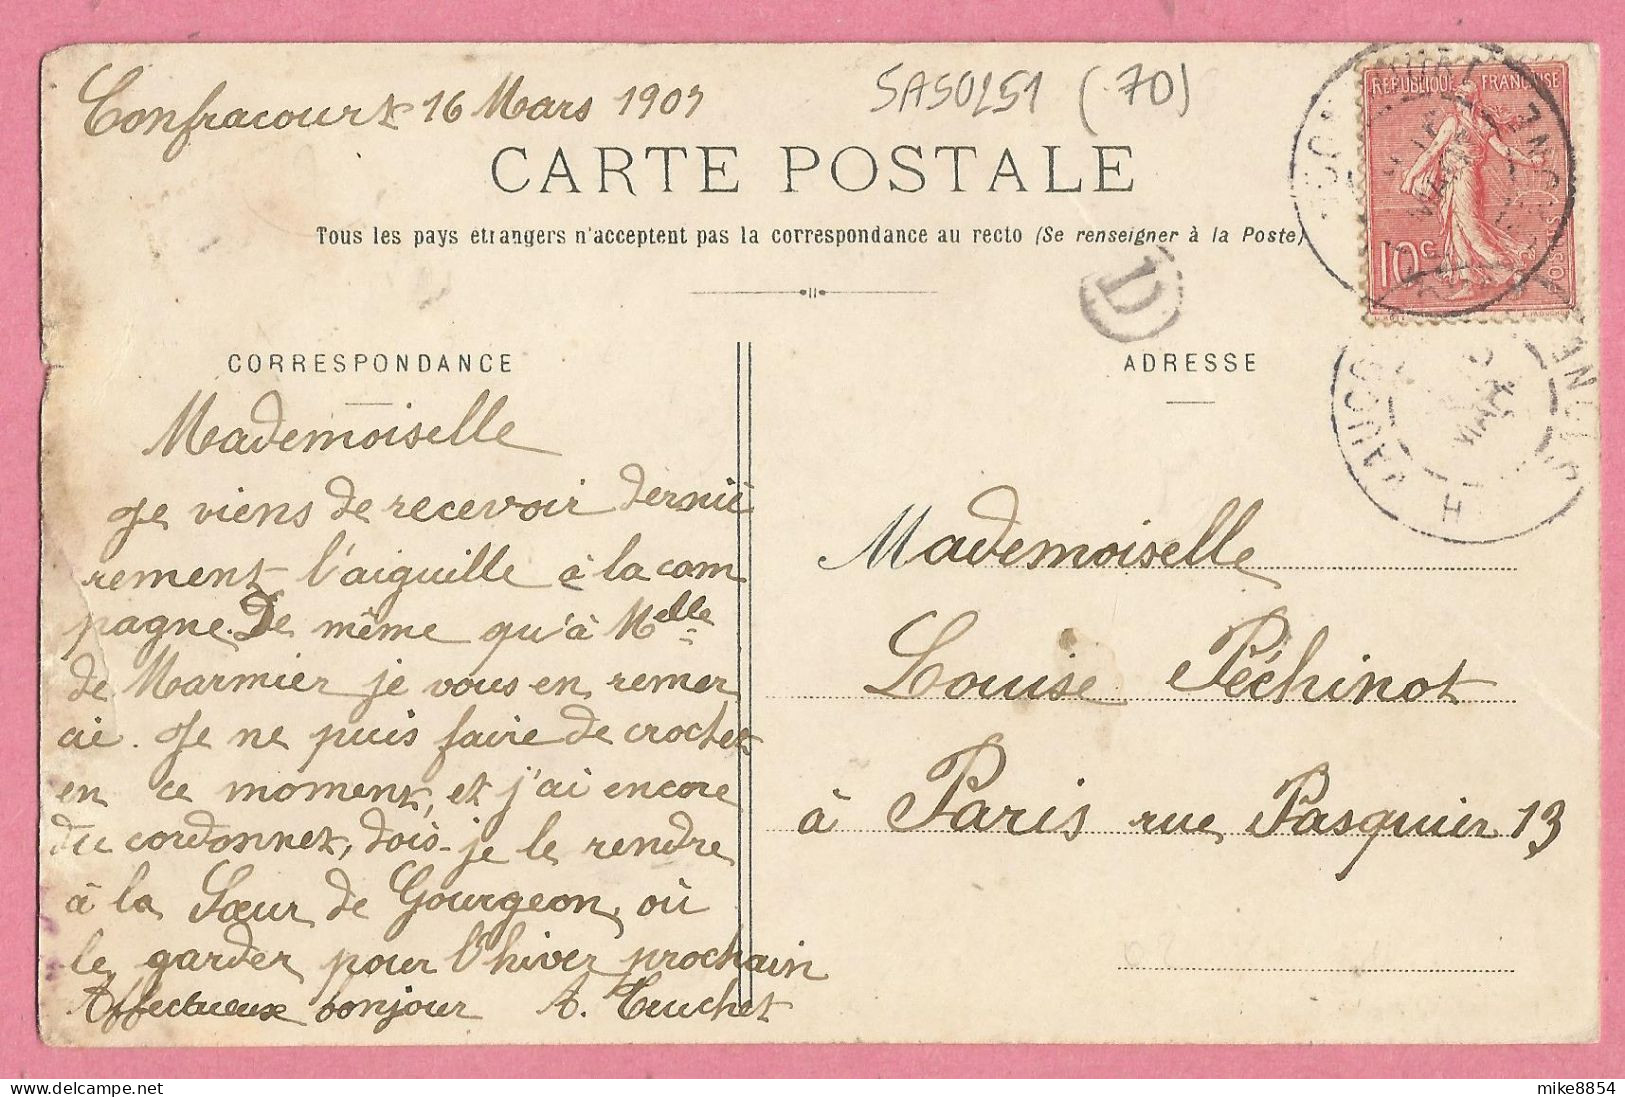 Confracourt 16 Mars 1907
SA50251 (70)
CARTE POSTALE
Tous les pays étrangers n'acceptent pas la correspondance au recto (Se renseigner à la Poste)
REPUBLIQUE FRANÇAISE
10c
D
CORRESPONDANCE
Mademoiselle
Je viens de recevoir derniè
rement l'aiguille à la cam
pagne. De même qu'à Melle
de Marmier je vous en remer
cie. Je ne puis faire de crochet
en ce moment, et j'ai encore
du cordonnet, dois-je le rendre
à la Sœur de Gourgeon, où
le garder pour l'hiver prochain
Affectueux bonjour A. Truchet
ADRESSE
Mademoiselle
Louise Péchinot
à Paris rue Pasquier 13
mike8854